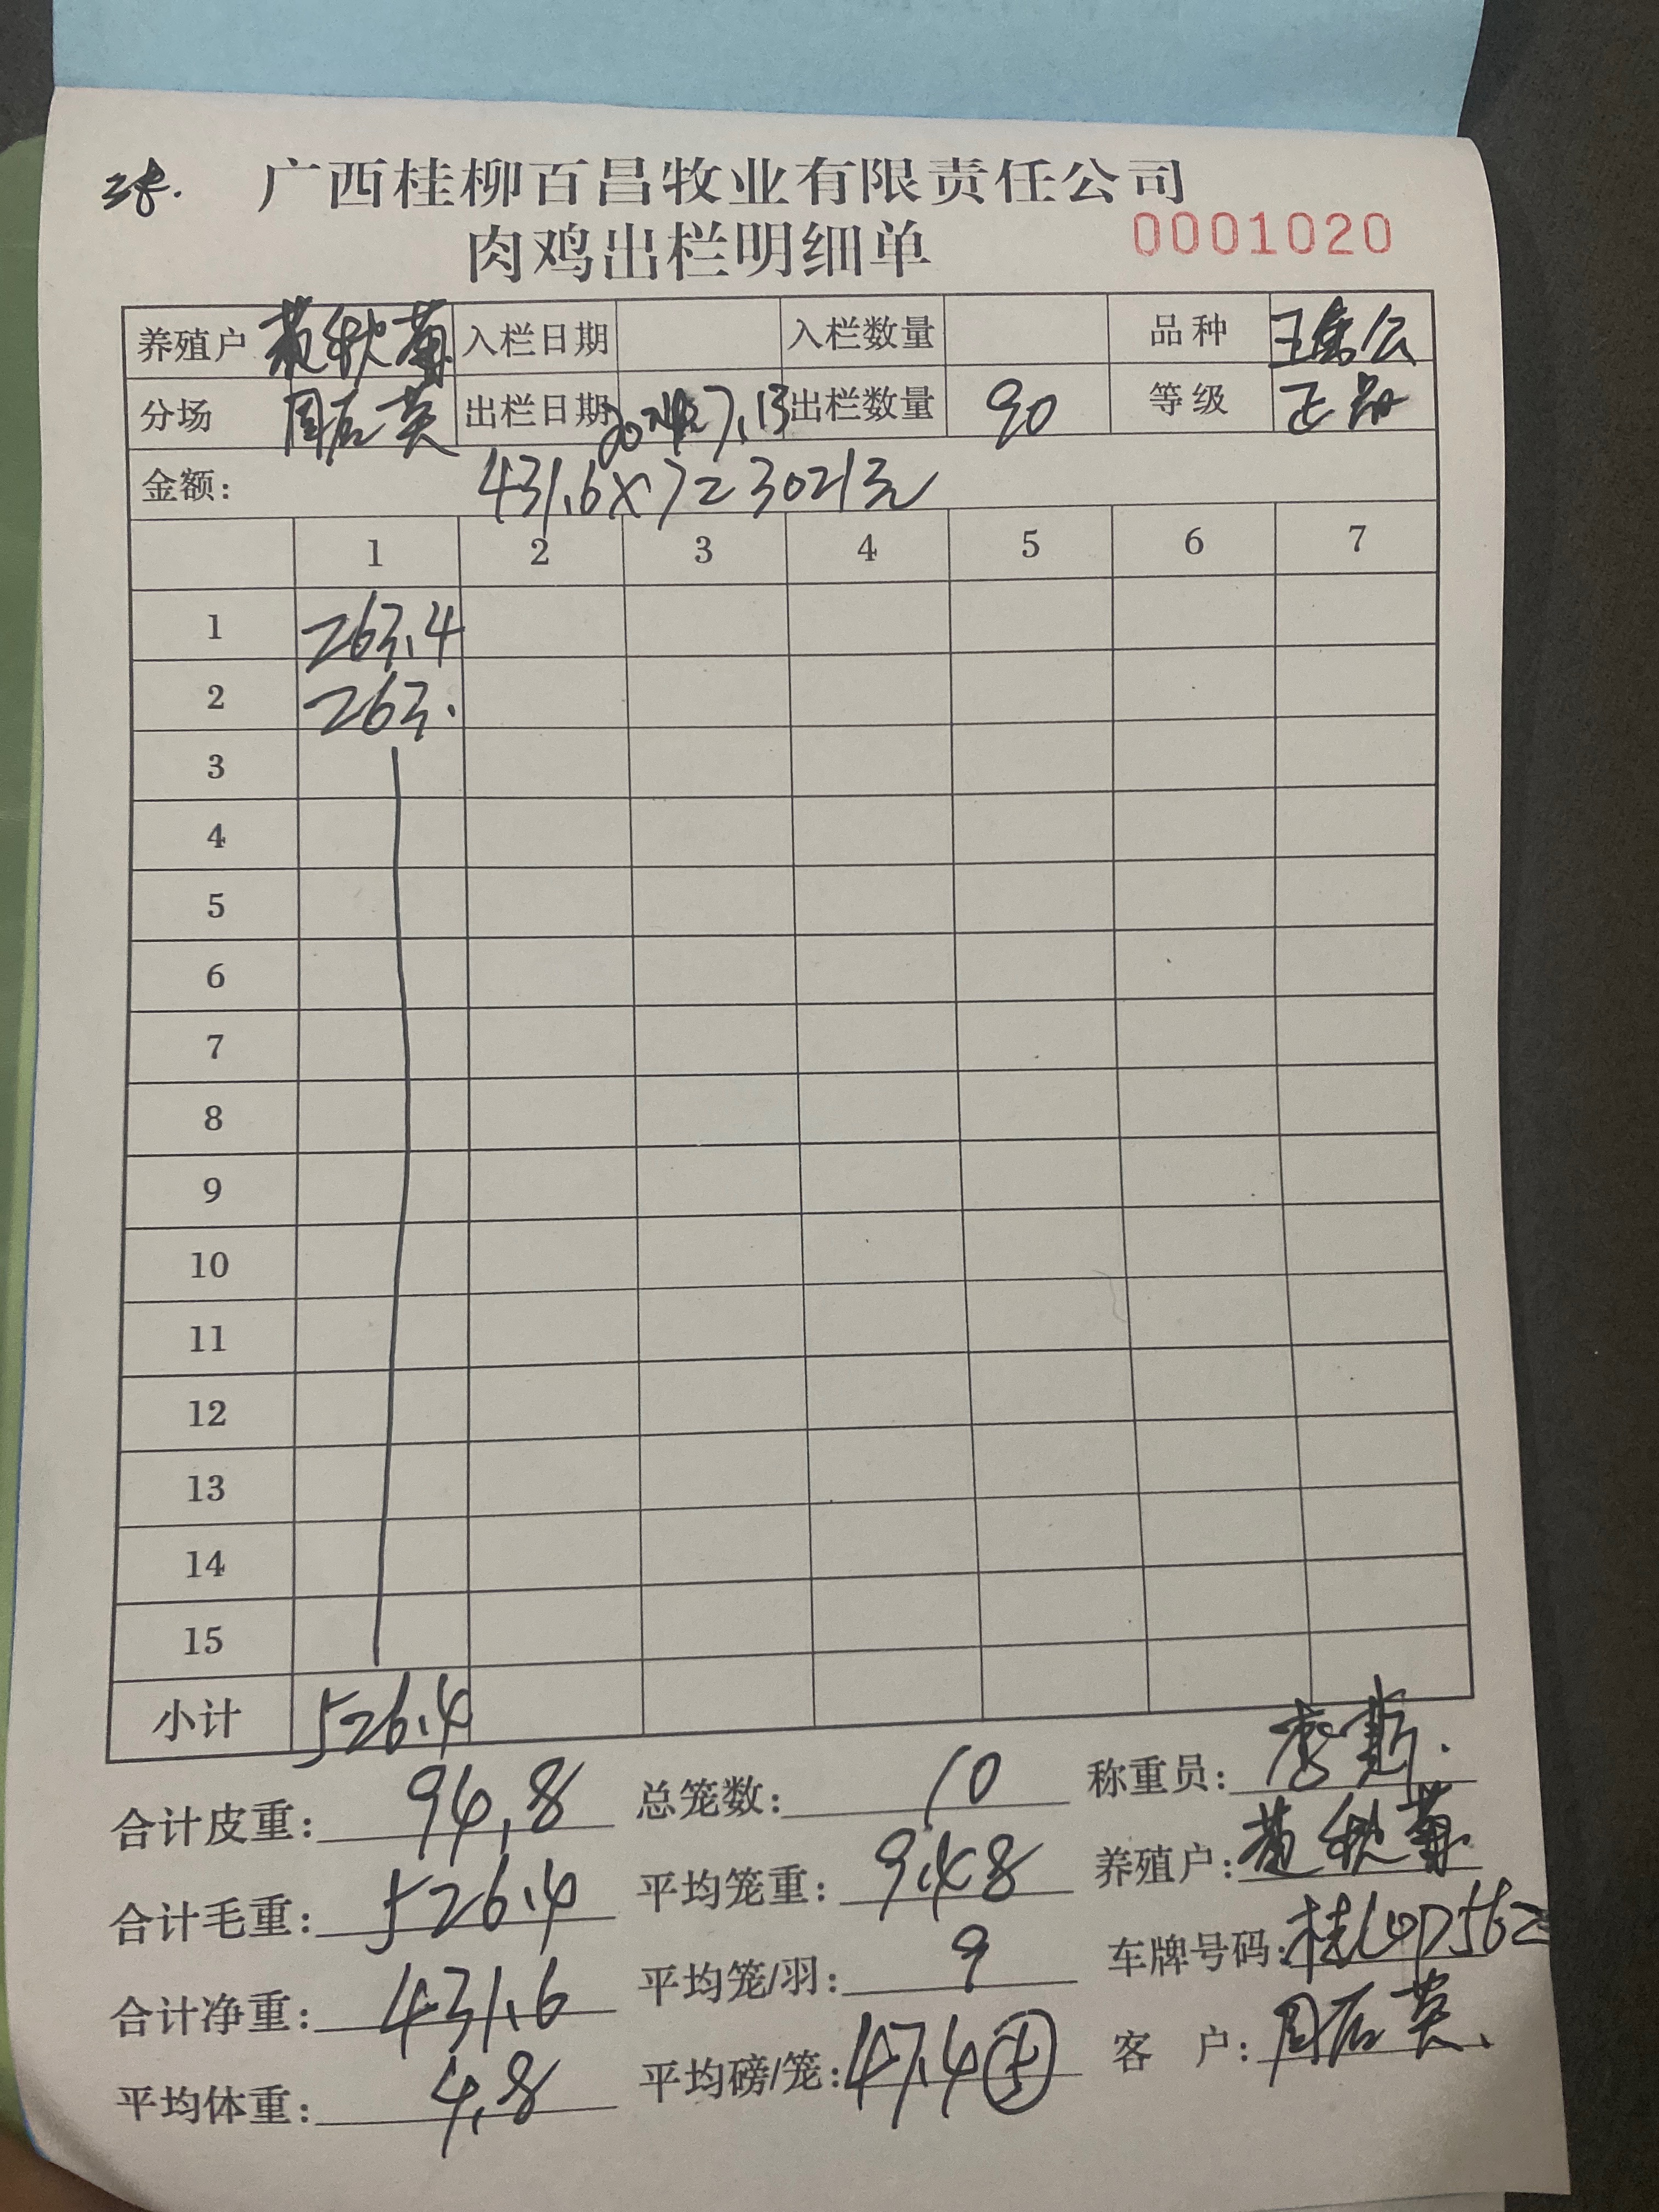 广西桂柳百昌牧业有限责任公司
肉鸡出栏明细单 0001020
养殖户 黄秋菊 入栏日期 入栏数量 品种
分场 周石英 出栏日期 7.13 出栏数量 90 等级 正品
金额: 431.6×7=3021元
1 2 3 4 5 6 7
1 263.4
2 263.
3
4
5
6
7
8
9
10
11
12
13
14
15
小计 526.4
合计皮重: 94.8 总笼数: 10 称重员:
合计毛重: 526.4 平均笼重: 9.48 养殖户: 黄秋菊
合计净重: 431.6 平均笼/羽: 9 车牌号码:
平均体重: 4.8 平均磅/笼: 47.4 客 户: 周石英